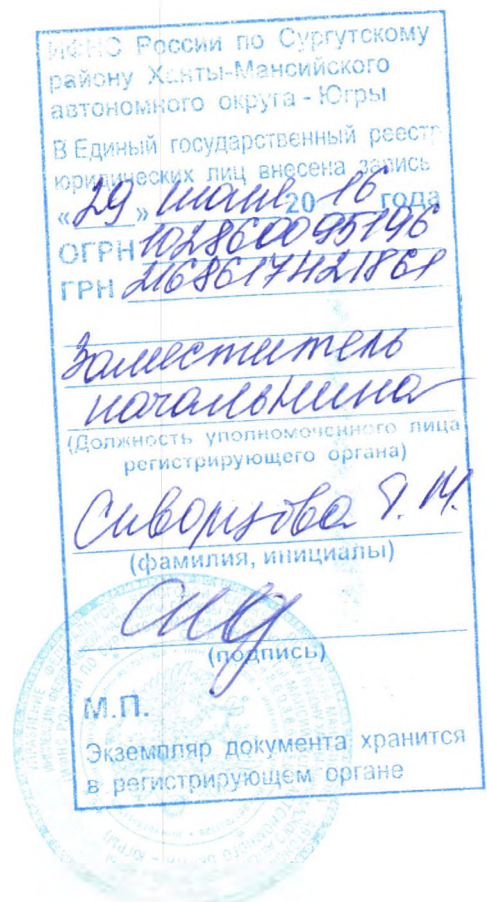 ИФНС России по Сургутскому
району Ханты-Мансийского
автономного округа - Югры
В Единый государственный реестр
юридических лиц внесена запись
«29» июля 2016 года
ОГРН 1028600
ГРН 2168617421861
Заместитель
начальника
(Должность уполномоченного лица
регистрирующего органа)
Скворцова
(фамилия, инициалы)
(подпись)
М.П.
Экземпляр документа хранится
в регистрирующем органе